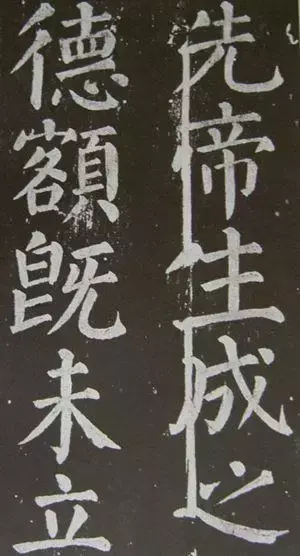 先帝生成之
德額既未立